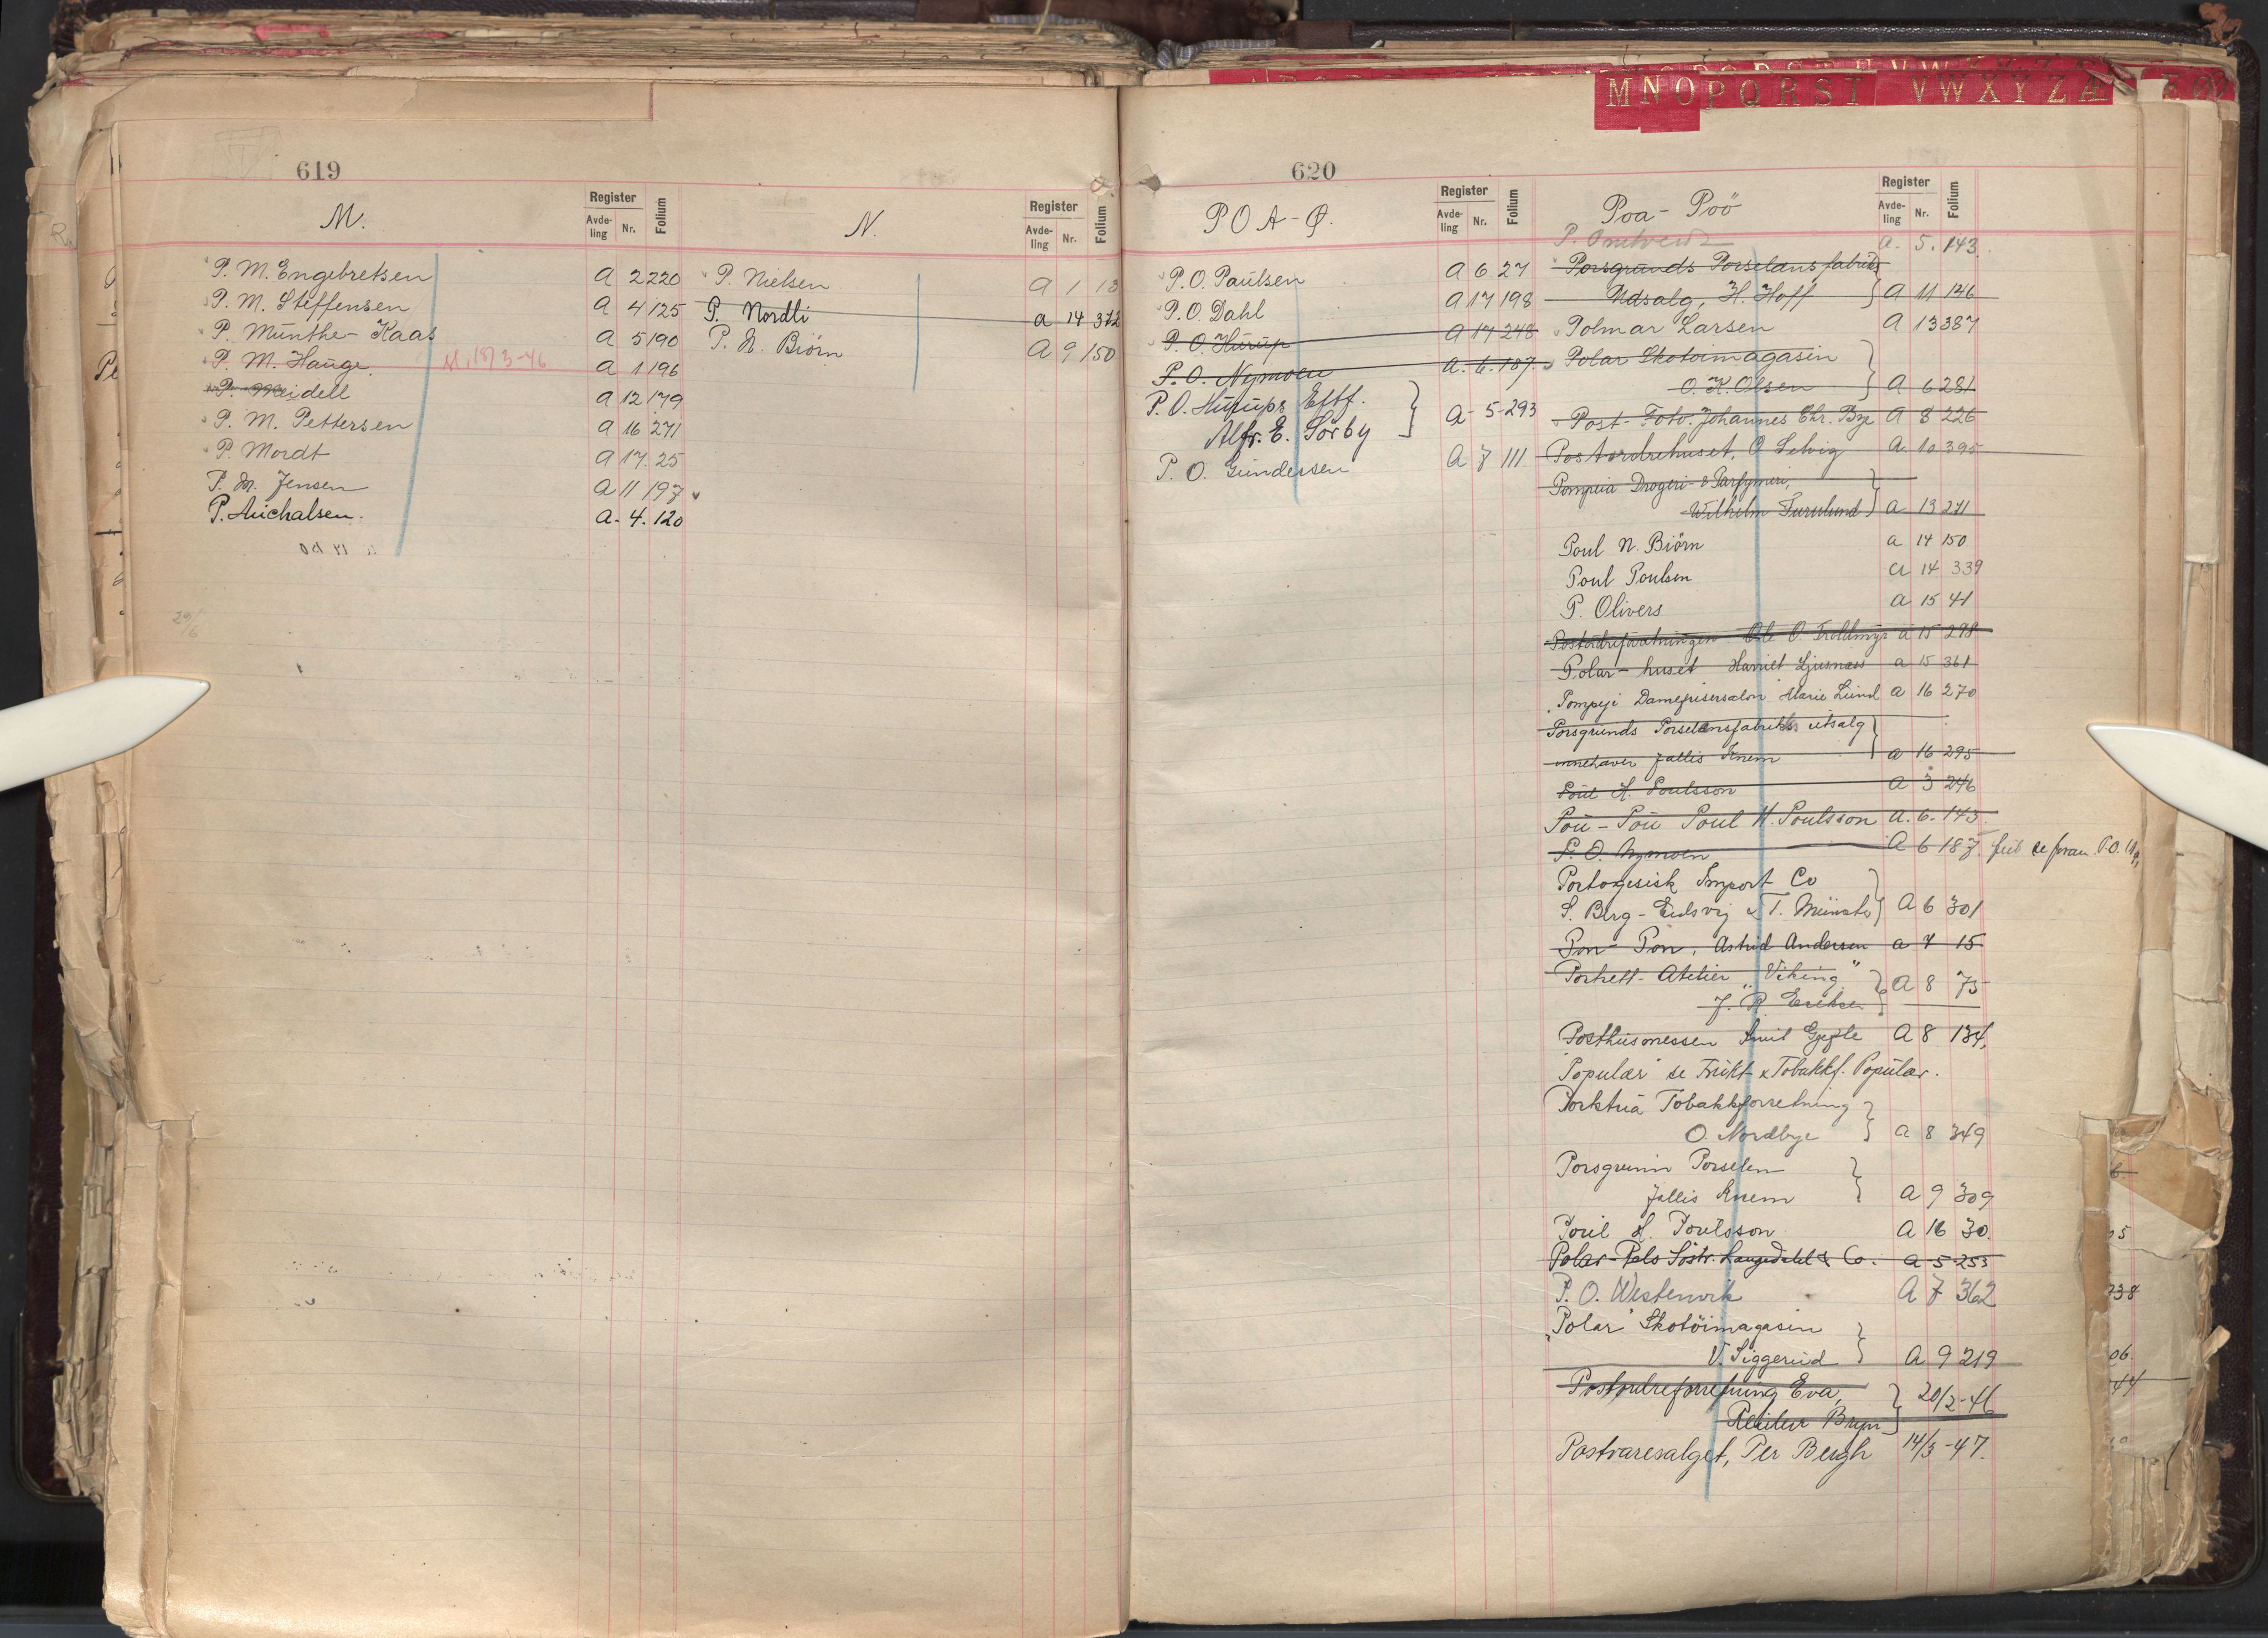 MNOPQRST VWXYZÆ
619
M.
Register
Avde-
ling
Nr.
Folium
P. M. Engebretsen A 2 220
P. M. Steffensen A 4 125
P. Munthe-Kaas A 5 190
P. M. Hauge. A 1 196
P. Meidell A 12 179
P. M. Pettersen A 16 271
P. Mordt A 17 25
P. M. Jensen A 11 197
P. Michalsen. A. 4. 120
29/6
N.
Register
Avde-
ling
Nr.
Folium
P. Nielsen A 1 13
P. Nordli A 14 312
P. N. Biörn A 9 150
620
P O A - Ø.
Register
Avde-
ling
Nr.
Folium
P. O. Paulsen A 6 27
P. O. Dahl A 17 198
P. O. Hurup A 17 248
P. O. Nymoen A. 6. 187.
P. O. Hurups Eftf.
Alfr. E. Sørby A- 5- 293
P. O. Gundersen A 7 111
Poa - Poö
Register
Avde-
ling
Nr.
Folium
P. A. 5. 143.
Porsgrunds Porselansfabriks
Udsalg, H. Hoff A 11 146
Polmar Larsen A 13 387
Polar Skotøimagasin
O. K. Olsen A 6 281
Post-Foto. Johannes Chr. Bye A 8 226
Postordrehuset, O. Selvig A. 10 395
Pompeia Drogeri- & Parfymeri,
Wilhelm Furulund A 13 271
Poul N. Biörn A 14 150
Poul Poulsen A 14 339
P. Olivers A 15 41
Postordreforretningen Ole O. Troldmyr A 15 298
Polar-huset Harriet Ljusnæs A 15 361
Pompeji Damefrisersalon Marie Lund A 16 270
Porsgrunds Porselensfabrikks utsalg
innehaver Jallis Knem A 16 295
Poul H. Poulsson A 3 246
Pou-Pou Poul H. Poulsson A. 6. 143.
P. O. Nymoen A 6 187. se foran P.O.
Portogesisk Import Co
S. Berg-Eidsvig & T. Münster A 6 301
Pon-Pon, Astrid Andersen A 7 15
Portrett-Atelier "Viking"
J. R. Eriksen A 8 75
Posthusmessen Emil Gjefle A 8 134.
"Populær" se Frukt- & Tobakkf. Populær.
Porktua Tobakkforretning
O. Nordbye A 8 349
Porsgrunn Porselen
Jallis Knem A 9 309
Poul H. Poulsson A 16 30.
Polar-Pels Søstr. Langedahl & Co. A 5 253
P. O. Westervik A 7 362
"Polar" Skotöimagasin
V. Siggerud A 9 219
Postordreforretning Eva,
Reidar Bryn 20/2-46
Postvaresalget, Per Bergh 14/3-47.